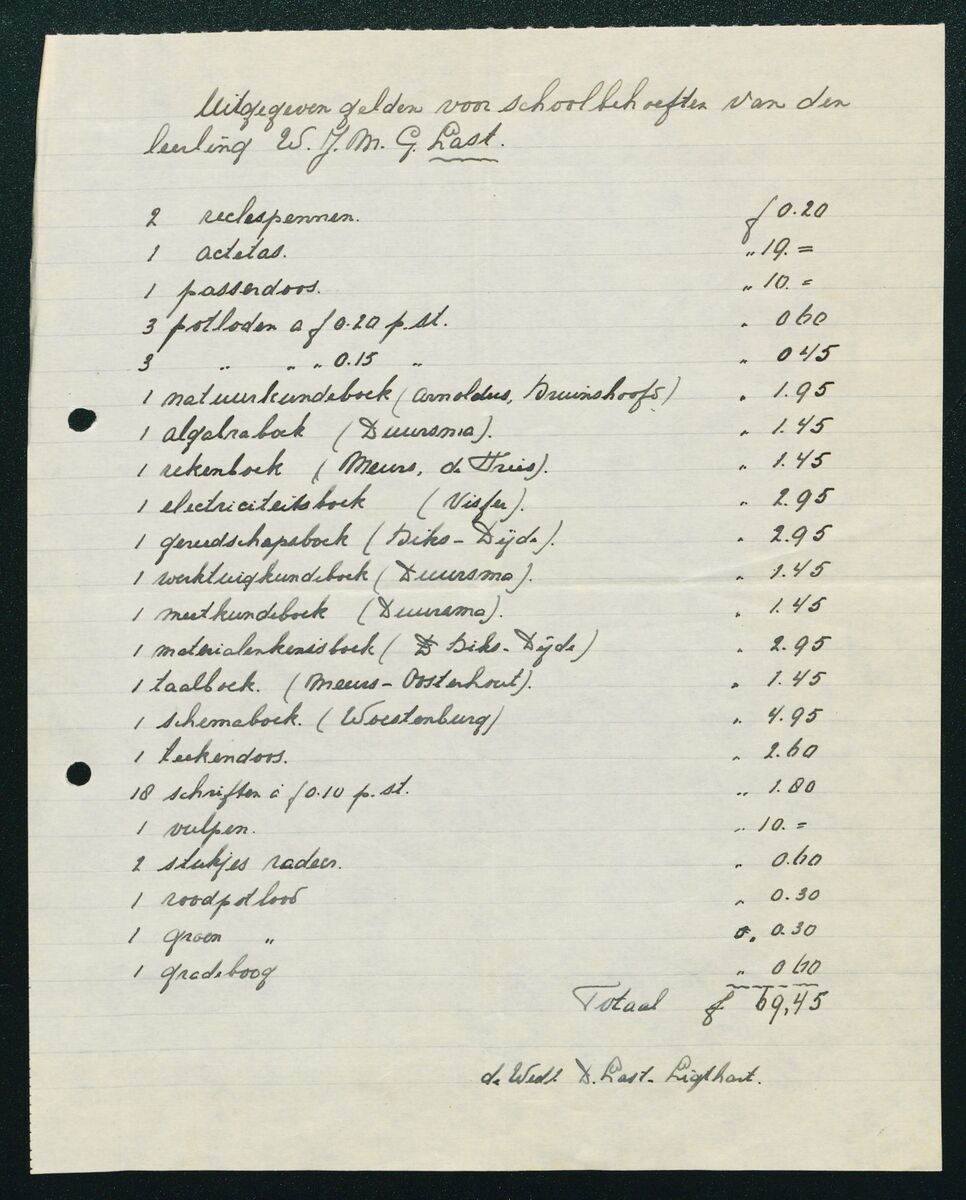 Uitgegeven gelden voor schoolbehoeften van den
leerling W. J. M. G. Last.
2 redespennen. f 0.20
1 actetas. „ 19. =
1 passerdoos. „ 10. =
3 potloden a f 0.20 p. st. „ 0 60
3 „ „ „ 0.15 „ „ 0 45
1 natuurkundeboek (Arnoldus, Bruinshoofd.) „ 1.95
1 algebraboek (Duursma). „ 1.45
1 rekenboek (Meurs, de Vries). „ 1.45
1 electriciteitsboek (Visser). „ 2.95
1 gereedschapsboek (Biks - Dijde). „ 2.95
1 werktuigkundeboek (Duursma). „ 1.45
1 meetkundeboek (Duursma). „ 1.45
1 materialenkenisboek (Biks - Dijde) „ 2.95
1 taalboek. (Meurs - Oosterhout). „ 1.45
1 schemaboek. (Woestenburg) „ 4.95
1 teekendoos. „ 2.60
18 schriften à f 0.10 p. st. „ 1.80
1 vulpen. „ 10. =
2 stukjes radeer. „ 0.60
1 roodpotlood „ 0.30
1 groen „ „ 0.30
1 gradeboog „ 0 60
Totaal f 69,45
de Wed. D. Last - Ligthart.